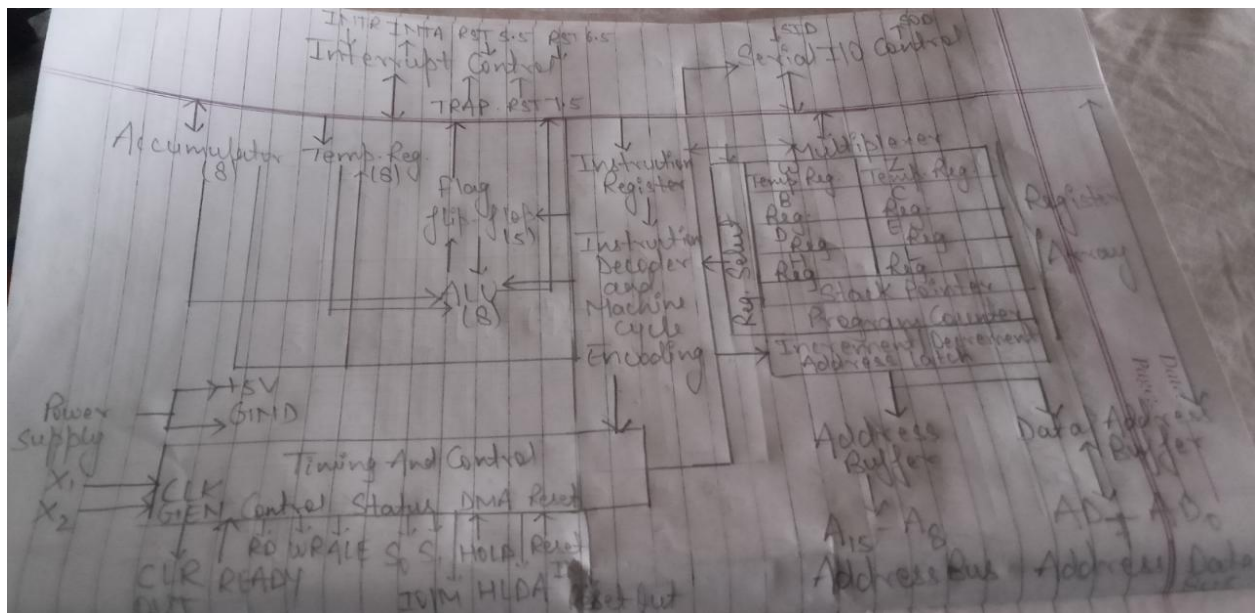 INTR INTA RST 5.5 RST 6.5
Interrupt Control
TRAP RST 7.5
SID SOD
Serial I/O Control
Accumulator
(8)
Temp. Reg.
(8)
Flag
flip-flop
(5)
ALU
(8)
Instruction
Register
Instruction
Decoder
and
Machine
Cycle
Encoding
Multiplexer
Reg. Select
W Z
Temp Reg. Temp. Reg.
B C
Reg. Reg.
D E
Reg Reg
H L
Reg Reg
Stack Pointer
Program Counter
Increment Decrement
Address Latch
Register
Array
Power
supply
+5V
GND
X1
X2
CLK
GEN
Timing And Control
Control Status DMA Reset
RD WR ALE S0 S1 HOLD Reset
In
CLK READY IO/M HLDA Reset Out
OUT
Address
Buffer
A15 - A8
Address Bus
Data/Address
Buffer
AD7 - AD0
Address/Data
Bus